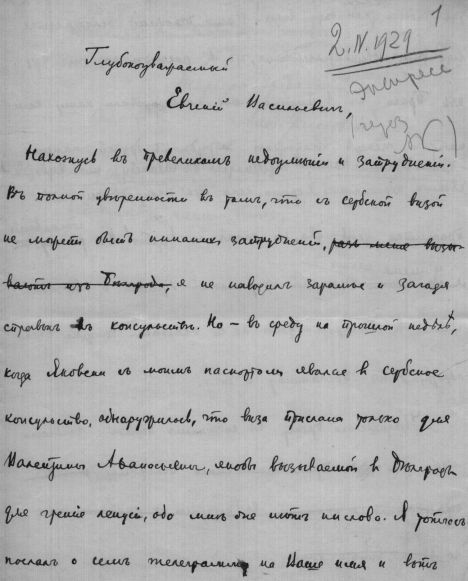 1
2.IV.1929
Экспресс
(через
Глубокоуважаемый
Евгений Васильевич,
Нахожусь въ превеликомъ недоумѣніи и затрудненіи.
Въ полной увѣренности въ томъ, что съ сербской визой
не можетъ быть никакихъ затрудненій, разъ меня вызы-
ваютъ изъ Бѣлграда, я не наводилъ заранѣе и загодя
справокъ въ консульствѣ. Но – въ среду на прошлой недѣлѣ,
когда Яновскій съ моимъ паспортомъ явился въ сербское
консульство, обнаружилось, что виза прислана только для
Валентины Афанасьевны, якобы вызываемой въ Бѣлградъ
для чтенія лекцій, обо мнѣ же нѣтъ ни слова. Я тотчасъ
послалъ о семъ телеграмму на Ваше имя и вотъ